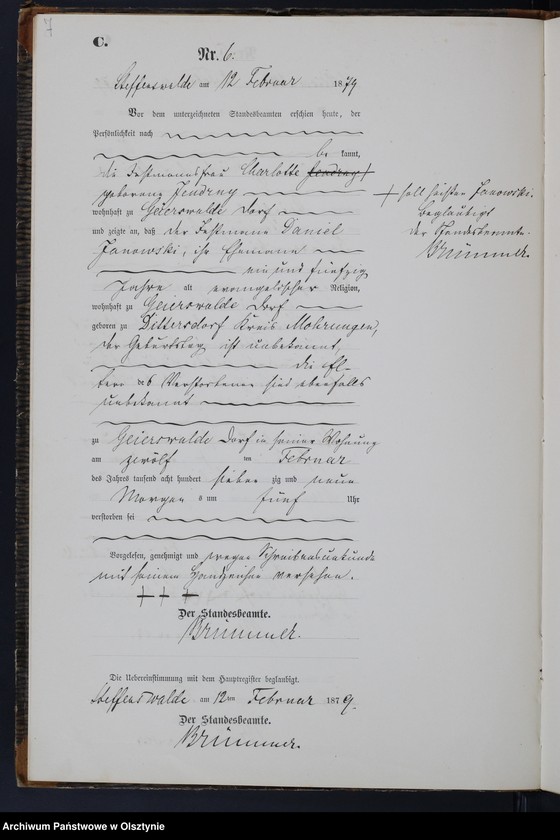 7
C.
Nr. 6.
Steffenswalde am 12 Februar 1879
Vor dem unterzeichneten Standesbeamten erschien heute, der
Persönlichkeit nach
be kannt,
die Losmannsfrau Charlotte Jendray +
geborene Jendray
wohnhaft zu Geierswalde Dorf
und zeigte an, daß der Losmann Daniel
Janowski, ihr Ehemann
ein und fünfzig
Jahre alt evangelischer Religion,
wohnhaft zu Geierswalde Dorf
geboren zu Dittersdorf Kreis Mohrungen,
der Geburtstag ist unbekannt,
die El-
tern des Verstorbenen sind ebenfalls
unbekannt
zu Geierswalde Dorf in seiner Wohnung
am zwölf ten Februar
des Jahres tausend acht hundert sieben zig und neun
Morgen s um fünf Uhr
verstorben sei
Vorgelesen, genehmigt und wegen Schreibensunkunde
mit seinem Handzeichen versehen.
+ + +
Der Standesbeamte.
Brümmer.
Die Uebereinstimmung mit dem Hauptregister beglaubigt.
Steffenswalde am 12ten Februar 1879.
Der Standesbeamte.
Brümmer.
+ soll heißen Janowski.
beglaubigt
der Standesbeamte.
Brümmer.
Archiwum Państwowe w Olsztynie